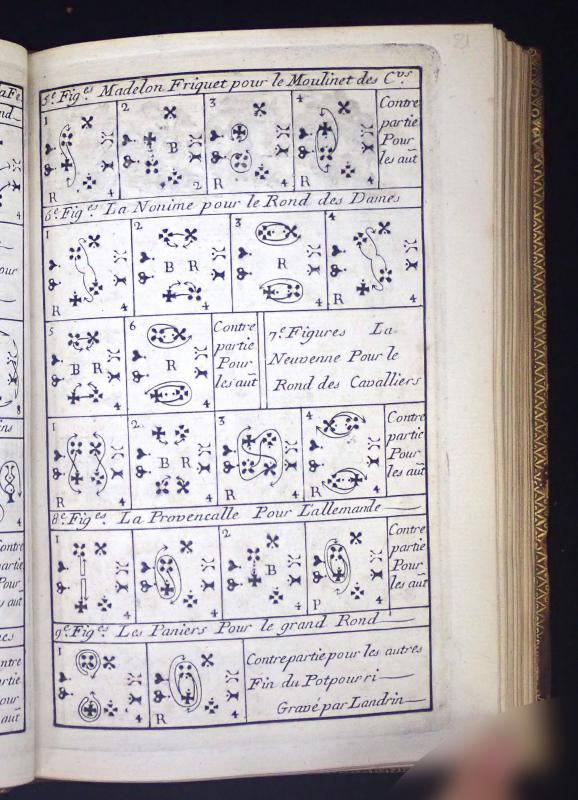 5.e Fig.es Madelon Friquet pour le Moulinet des C.vs
1 2 3 4
Contre
partie
Pour
les aut
B
R 4 2 R 4 R 4
6.e Fig.es La Nonime pour le Rond des Dames
1 2 3 4
B R R
R 4 4 4 R 4
5 6
Contre
partie
Pour
les aut
B R R
4 4
7.e Figures La
Neuvenne Pour le
Rond des Cavalliers
1 2. 3 4
Contre
partie
Pour
les aut
B R
R 4 4 R 4 R 4
8.e Fig.es La Provencalle Pour Lallemande
1 2
Contre
partie
Pour
les aut
B
4 4 4 P 4
9.e Fig.es Les Paniers Pour le grand Rond
1 2
Contrepartie pour les autres
Fin du Potpourri
Gravé par Landrin
4 R 4